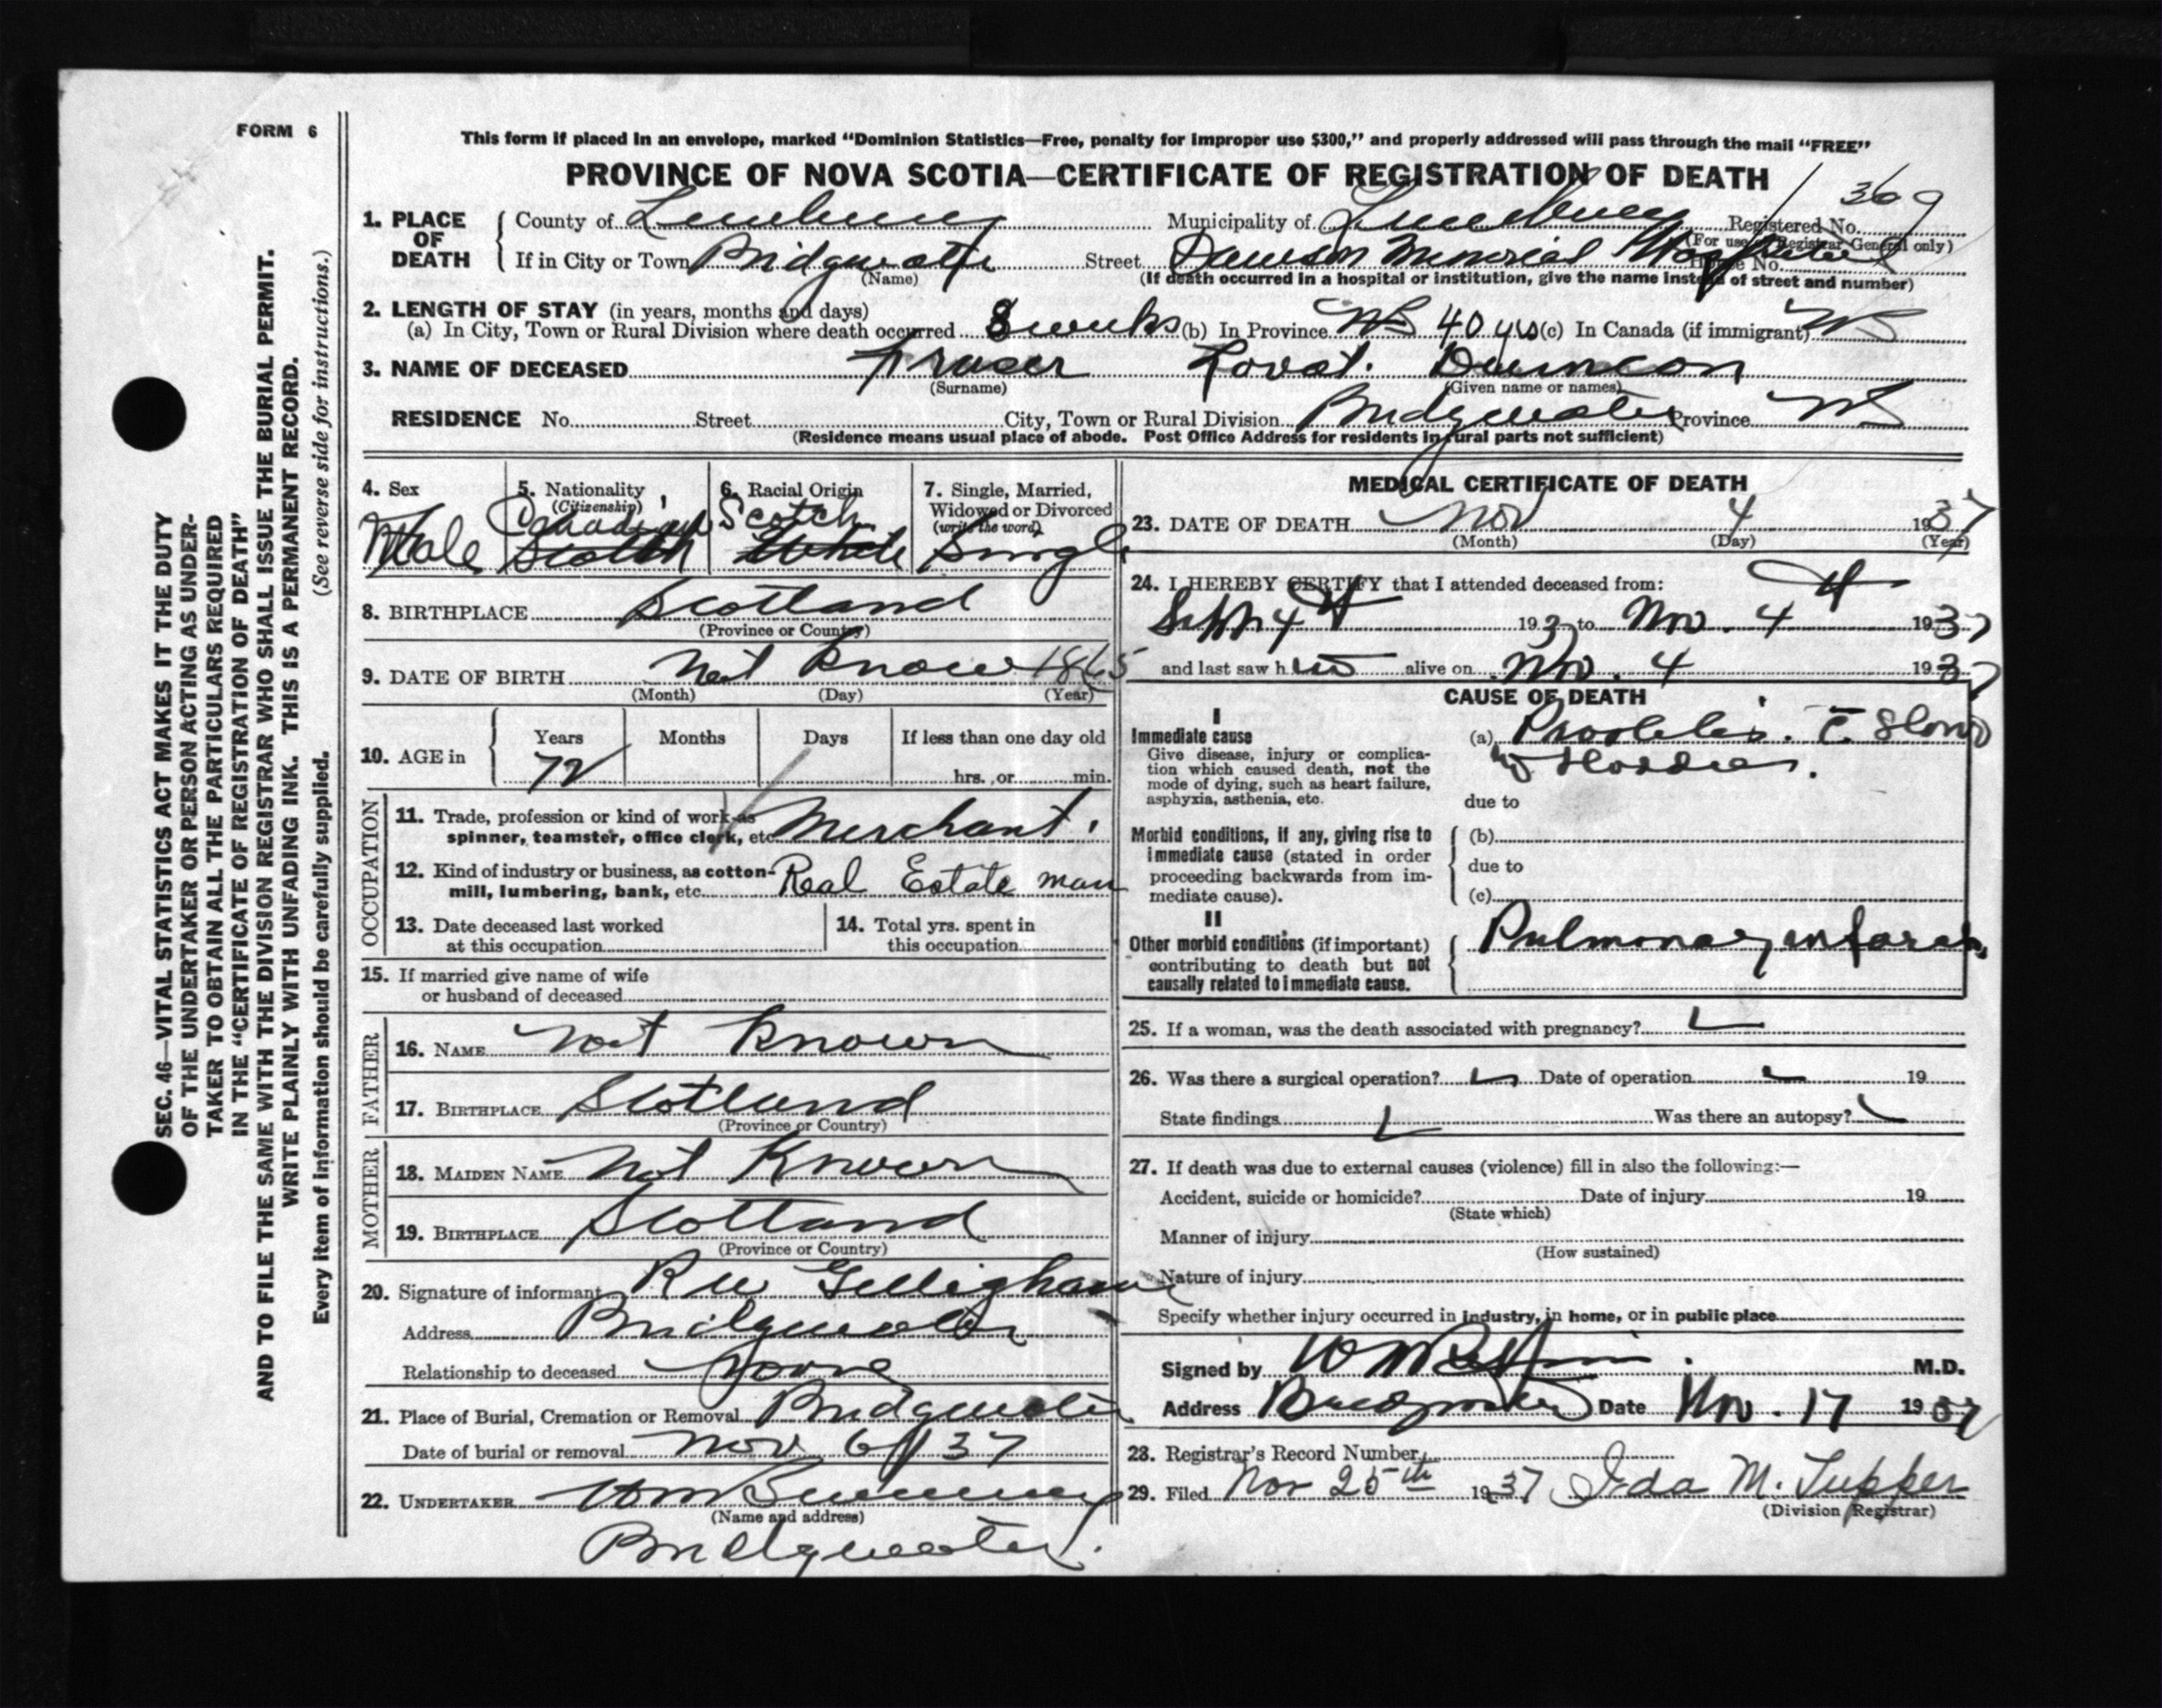 FORM 6
This form if placed in an envelope, marked “Dominion Statistics—Free, penalty for improper use $300,” and properly addressed will pass through the mail “FREE”
PROVINCE OF NOVA SCOTIA—CERTIFICATE OF REGISTRATION OF DEATH
1. PLACE OF DEATH County of Lunenburg Municipality of Lunenburg Registered No. 369
(For use of Registrar General only)
If in City or Town Bridgewater Street Dawson Memorial Hospital House No.
(Name) (If death occurred in a hospital or institution, give the name instead of street and number)
2. LENGTH OF STAY (in years, months and days)
(a) In City, Town or Rural Division where death occurred 8 weeks (b) In Province NS 40 yrs (c) In Canada (if immigrant) NS
3. NAME OF DECEASED Fraser Lovat. Duncan
(Surname) (Given name or names)
RESIDENCE No. Street City, Town or Rural Division Bridgewater Province NS
(Residence means usual place of abode. Post Office Address for residents in rural parts not sufficient)
4. Sex 5. Nationality (Citizenship) 6. Racial Origin 7. Single, Married, Widowed or Divorced (write the word)
Canadian Scotch
Male Scotch White Single
8. BIRTHPLACE Scotland
(Province or Country)
9. DATE OF BIRTH Not Know 1865
(Month) (Day) (Year)
10. AGE in Years Months Days If less than one day old
72 hrs. or min.
OCCUPATION
11. Trade, profession or kind of work as
spinner, teamster, office clerk, etc. Merchant
12. Kind of industry or business, as cotton-
mill, lumbering, bank, etc. Real Estate man
13. Date deceased last worked at this occupation
14. Total yrs. spent in this occupation
15. If married give name of wife
or husband of deceased
FATHER
16. NAME not Known
17. BIRTHPLACE Scotland
(Province or Country)
MOTHER
18. MAIDEN NAME Not Known
19. BIRTHPLACE Scotland
(Province or Country)
20. Signature of informant R W Gelligham
Address Bridgewater
Relationship to deceased None
21. Place of Burial, Cremation or Removal Bridgewater
Date of burial or removal Nov 6/37
22. UNDERTAKER
(Name and address)
Bridgewater.
MEDICAL CERTIFICATE OF DEATH
23. DATE OF DEATH Nov 4 1937
(Month) (Day) (Year)
24. I HEREBY CERTIFY that I attended deceased from:
Sept 4th 1937 to Nov. 4th 1937
and last saw him alive on Nov. 4 1937
CAUSE OF DEATH
I
Immediate cause
Give disease, injury or complica-
tion which caused death, not the
mode of dying, such as heart failure,
asphyxia, asthenia, etc.
(a)
due to
Morbid conditions, if any, giving rise to
immediate cause (stated in order
proceeding backwards from im-
mediate cause).
(b)
due to
(c)
II
Other morbid conditions (if important)
contributing to death but not
causally related to immediate cause.
Pulmonary infarct
25. If a woman, was the death associated with pregnancy?
26. Was there a surgical operation? Date of operation 19
State findings Was there an autopsy?
27. If death was due to external causes (violence) fill in also the following:—
Accident, suicide or homicide? Date of injury 19
(State which)
Manner of injury
(How sustained)
Nature of injury
Specify whether injury occurred in industry, in home, or in public place
Signed by M.D.
Address Bridgewater Date Nov. 17 1937
28. Registrar's Record Number
29. Filed Nov 25th 1937 Ida M. Tupper
(Division Registrar)
SEC. 46—VITAL STATISTICS ACT MAKES IT THE DUTY
OF THE UNDERTAKER OR PERSON ACTING AS UNDER-
TAKER TO OBTAIN ALL THE PARTICULARS REQUIRED
IN THE “CERTIFICATE OF REGISTRATION OF DEATH”
AND TO FILE THE SAME WITH THE DIVISION REGISTRAR WHO SHALL ISSUE THE BURIAL PERMIT.
WRITE PLAINLY WITH UNFADING INK. THIS IS A PERMANENT RECORD.
Every item of information should be carefully supplied. (See reverse side for instructions.)